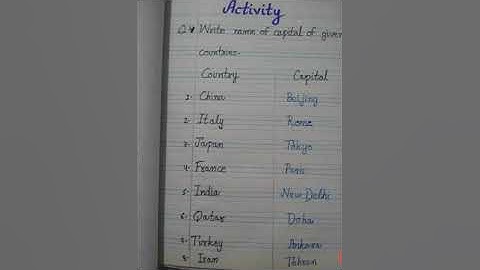 Activity
Q Write name of capital of given
countries.
Country Capital
1. China Beijing
2. Italy Rome
3. Japan Tokyo
4. France Paris
5. India New Delhi
6. Qatar Doha
7. Turkey Ankara
8. Iran Tehran